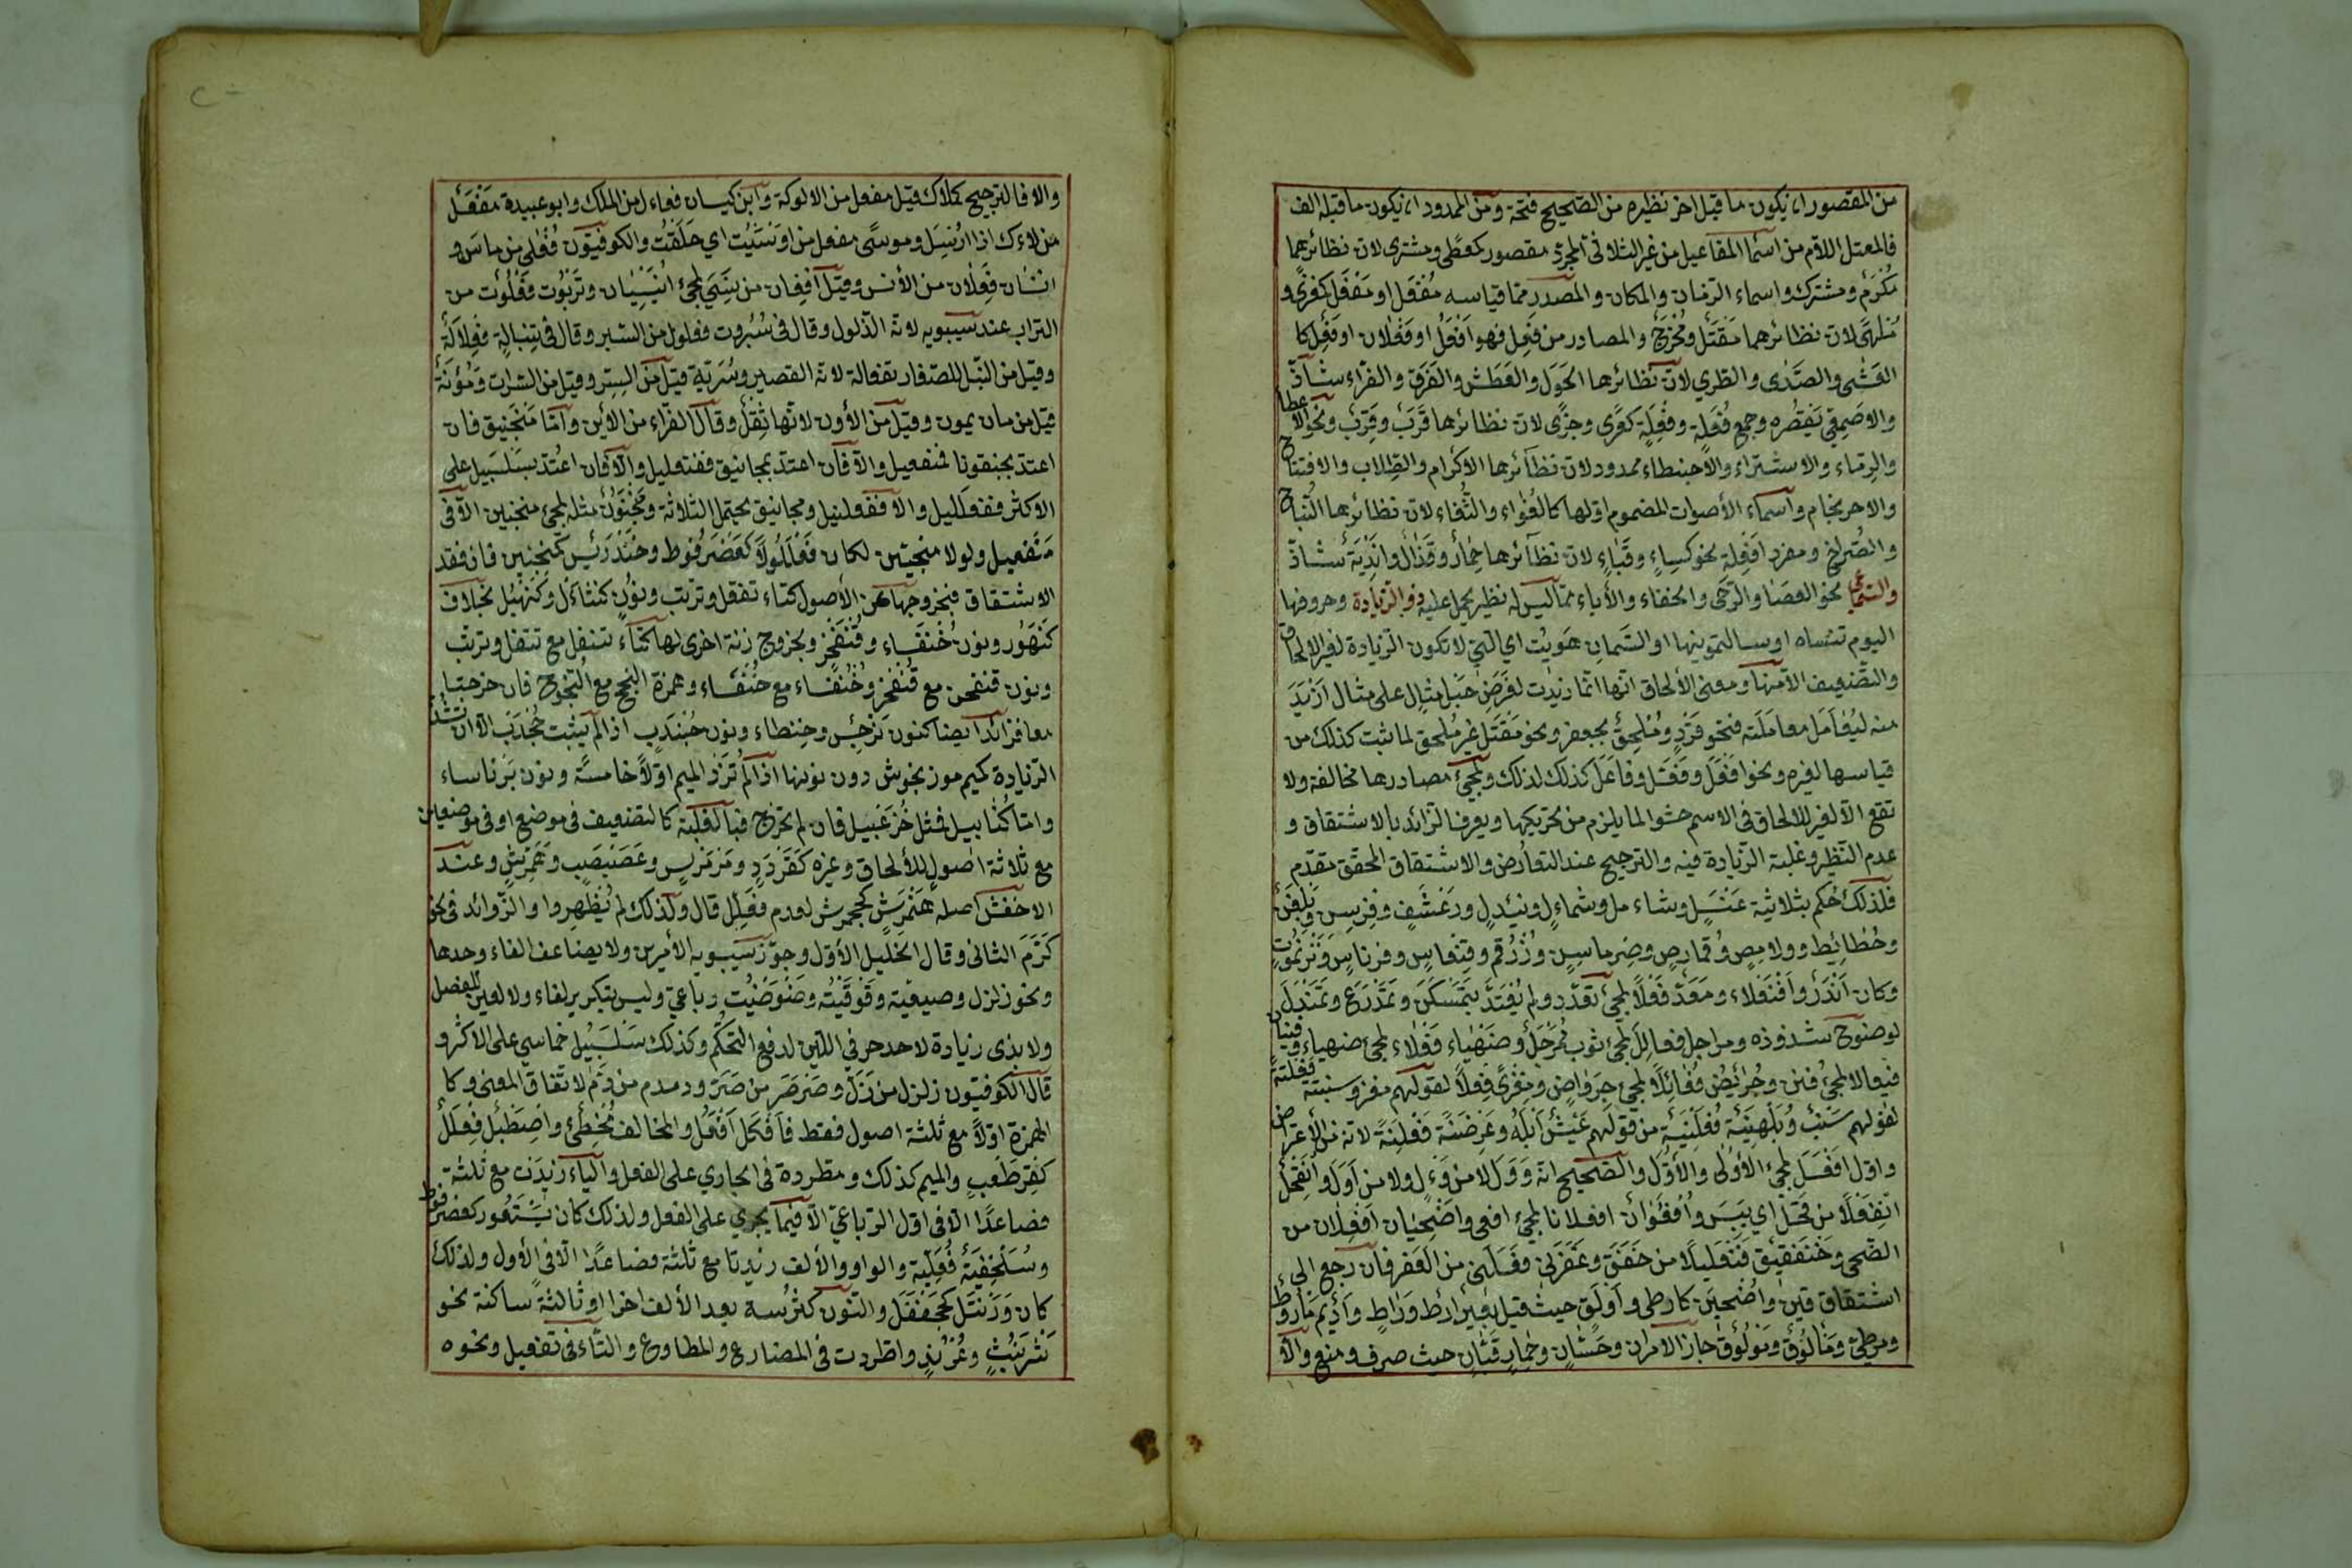 من المقصور ان يكون ما قبل اخر نظيره من الصّحيح فتحة ومن الممدود ان يكون ما قبله الف
فالمعتل اللاّم من اسماء المفاعيل من غير الثلاثى المجرّد مقصور كمعطًى ومشترى لان نظائرهما
مُكْرَم ومشترك واسماء الزمان والمكان والمصدر ممّا قياسه مَفْعَل او مُفْعَل كمغزًى و
مُلهًى لان نظائرهما مَقْتَل ومُخْرَج والمصادر من فَعِل فهو اَفْعَل او فَعْلان او فَعِل كا
العَشٰى والصَّدٰى والطَّرى لان نظائرها الحَوَل والعَطَش والفَرَق والغراء شاذّ
والاصمعى يَقصُره وجمع فُعلة وفِعلة كعُرًى وجزًى لان نظائرها قُرَب وقِرَب ونحو الاعطا
والرماء والاشتراء والاحبنطاء ممدود لان نظائرها الاكرام والطِّلاب والافتتاح
والاحرنجام واسماء الأصوات المضموم اوّلها كالعُواء والثُّغاء لان نظائرها النُّباح
والصُّراخ ومفرد اَفْعِلة نحو كساءٍ وقَباءٍ لان نظائرها حمار وقَذال وانديَة شاذّ
والسّماعى نحو العصا والرحى والخفاء والأباء ممّا ليس له نظير يحمل عليه ذو الزيادة وحروفها
اليوم تنساه او سالتمونيها او السّمان هَوِيْت اى التى لا تكون الزيادة لغير الالحاق
والتّضعيف الا منها ومعنى الألحاق انها انّما زيدت لغرض جعل مثال على مثال ازيد
منه ليُعَامَل معاملته فنحو قَرْدد مُلحَق بجعفر ونحو مَقْتَل غير مُلحق لما ثبت كذلك من
قياسها لغيره ونحو افعَل وفعّل وفاعَل كذلك لذلك ولمجئ مصادرها مخالفة ولا
تقع الالف للالحاق فى الاسم حشوا لما يلزم من تحريكها ويعرف الزائد بالاشتقاق و
عدم النّظير وغلبة الزّيادة فيه والترجيح عند التعارض والاشتقاق المحقّق مقدّم
فلذلك حُكم بثلاثية عَنْسَل وشاءمل وشمأءل ونئدل ورَعْشَن وفِرسِن وبِلَغْن
وحُطائِط ودلامِص وقُمارِص وهِرماس وزُرْقم وقِنعاس وفرناس وتَرْنَمُوت
وكان اَلَنْدَد اَفَنْعَلاً ومَعَدّ فَعَلاً لمجئ تمعدد ولم يُعتدّ بتمسكن وتمدرع وتمندل
لوضوح شذوذه ومراجل فعالل لمجئ ثوب مُمَرجَل وضَهْياء فعلأ لمجئ ضهياء وفينان
فيعالا لمجئ فنن وجُرائض فُعائلاً لمجئ جرواض ومِعْزًى فِعلًى لقولهم معز وسنبتة فَعْلتة
لقولهم سَنْبٌ وبُلَهْنِية فُعَلْنِية من قولهم عيش ابله وعِرَضنة فِعَلْنة لانه من الأعتراض
واوّل افعل لمجئ الأولى والأُوَل والصّحيح انه من وَوَل لا من وأل ولا من أوَل وانقَحل
انفعلاً من قَحَل اى يَبِسَ وأُفعوان افعلانا لمجئ افعى واضحيان افعلان من
الضّحى وخَنفَقيق فَنعليلًا من خَفَقَ وعَفَرنى فَعَلْنى من العفر فان رجع الى
اشتقاقين واضحين كارطى واولق حيث قيل بعير آرط وراط واديم مأروط
ومرطىّ ومألوق ومَوْلوق جاز الامران وحَسّان وحمار قبّان حيث صرف ومنع والّا
والّا فالترجيح كملأك قيل مفعل من الالوكة وابن كيسان فعأل من الملك وابو عبيدة مفعل
من لاءك اذا ارسل وموسًى مفعل من اوسيت اى حلقت والكوفيون فُعْلى من ماس و
انسان فعلان من الأنس وقيل اِفعان من نسى لمجئ انيسيان وتَرَبُوت فَعَلوت من
التراب عند سيبويه لانه الذّلول وقال فى سُبروت فعلول من السبر وقال فى تِنبالة فِعلالة
وقيل من النّبل للصّغار تفعالة لانه القصير وسُرّية قيل من السِرّ وقيل من السّراة ومؤنة
قيل من مان يمون وقيل من الأون لانّها ثِقْل وقال الفرّاء من الأين وامّا منجنيق فان
اعتدّ بجنقونا فمنفعيل والّا فان اعتدّ بمجانيق ففنعليل والّا فان اعتُدّ بسلسبيل على
الاكثر ففعلليل والّا ففعلنيل ومجانيق يحتمل الثلاثة ومنجنون مثله لمجئ منجنين الّا فى
مَنفعيل ولولا منجنين لكان فعللولًا كعَضرفوط وخَندريس كمنجنين فان فقد
الاشتقاق فبخروجها عن الأصول كتاء تتفل وترتب ونون كنتأل وكنهبل بخلاف
كنهور ونون خنفساء وقنفخر وبخروج زنة اخرى لها كتاء تتفل مع تتفل وترتب
ونون قنفخر مع قنفخر وخُنفَساء مع خُنفُساء وهمزة النجج مع النجوج فان خرجتا
معا فزائد ايضا كنون نرجس وحنطأء ونون جُندَب اذا لم يثبت جُخدَب الّا ان تشذّ
الزّيادة كميم مرزنجوش دون نونها اذا لم تُزَد الميم اوّلاً خامسة ونون برناساء
وامّا كُنابيل فمثل خُزَعبيل فان لم تخرج فبالغلبة كالتضعيف فى موضع او فى موضعين
مع ثلاثة اصول للألحاق وغيره كقَردد ومَرْمَريس وعَصَبصَب وهَمَّرِش وعند
الاخفش اصله هَنْمَرِش كجحمرش لعدم فعّلل قال ولذلك لم يُظهِروا والزّوائد فى نحو
كَرّمَ الثانى وقال الخليل الأوّل وجوّز سيبويه الأمرين ولا يضاعف الفاء وحدها
ونحو زلزل وصيصية وقوقيت وضوضيت رباعىّ وليس بتكرير لفاء ولا لعين للفصل
ولا بذى زيادة لاحد حرفى اللّين لدفع التحكّم وكذلك سلسبيل خماسىّ على الأكثر و
قال الكوفيّون زلزل من زلّ وصرصر من صرّ ودمدم من دمّ لاتفاق المعنى وكا
الهمزة اوّلاً مع ثلثة اصول فقط فافكل افعل والمخالف مُخطئ واصطبل فِعلَلّ
كقِرطَعب والميم كذلك ومطّردة فى الجارى على الفعل والياء زيدت مع ثلثة
فصاعدًا الّا فى اوّل الرّباعىّ الّا فيما يجرى على الفعل ولذلك كان يستعور كعضرفوط
وسُلحفية فُعَلّية والواو والألف زيدتا مع ثلثة فصاعدًا الّا فى الأول ولذلك
كان وَرَنتل كجحنفل والنّون كثرت بعد الألف اخرا او ثالثة ساكنة نحو
شَرَنبَث وعُرُند واطردت فى المضارع والمطاوع والتّاء فى تفعيل ونحوه